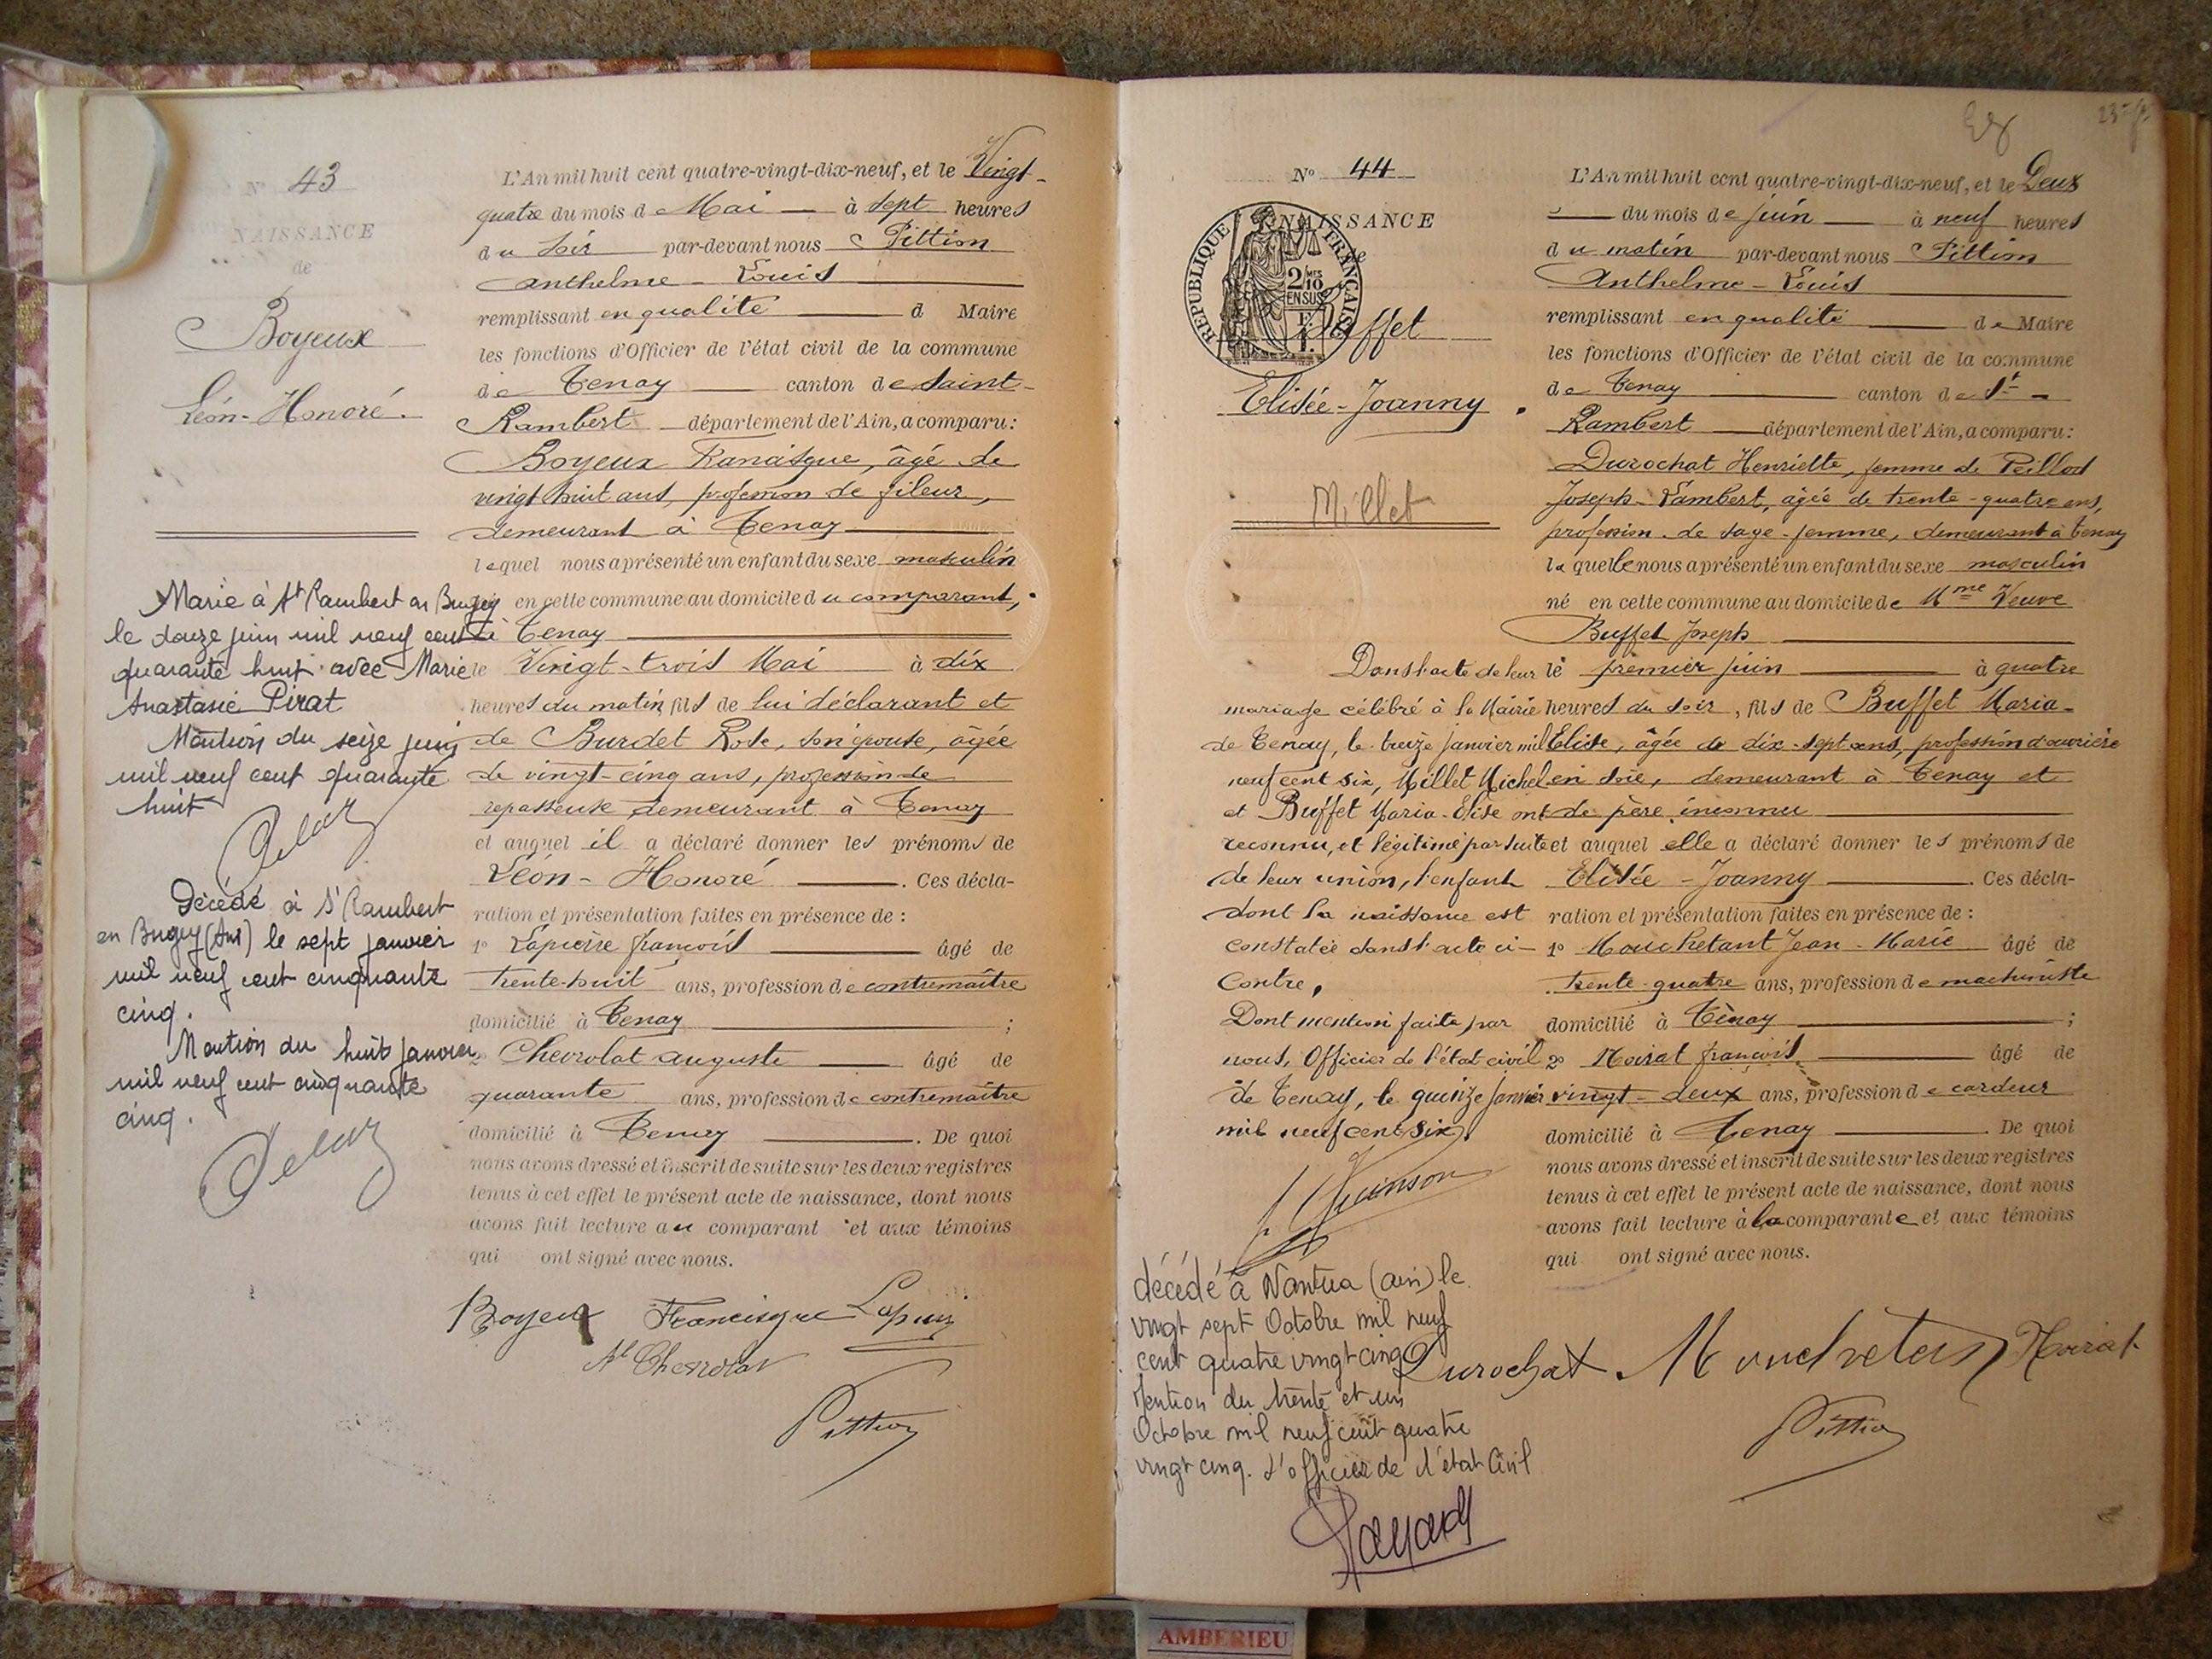 Nº 43
NAISSANCE
de
Boyeux
Léon-Honoré.
Marié à St Rambert en Bugey
le douze juin mil neuf cent
quarante huit avec Marie
Anastasie Pirat
Mention du seize juin
mil neuf cent quarante
huit
Décédé à St Rambert
en Bugey (Ain) le sept janvier
mil neuf cent cinquante
cinq.
Mention du huit janvier
mil neuf cent cinquante
cinq.
L'An mil huit cent quatre-vingt-dix-neuf, et le Vingt-
quatre du mois d e Mai à sept heures
d u soir par-devant nous Pittion
Anthelme - Louis
remplissant en qualité d Maire
les fonctions d'Officier de l'état civil de la commune
de Tenay canton de Saint-
Rambert département de l'Ain, a comparu :
Boyeux Francisque, âgé de
vingt huit ans, profession de fileur,
demeurant à Tenay
lequel nous a présenté un enfant du sexe masculin
en cette commune au domicile du comparant,
à Tenay
le Vingt-trois Mai à dix
heures du matin fils de lui déclarant et
de Burdet Rose, son épouse, âgée
de vingt-cinq ans, profession de
repasseuse demeurant à Tenay
et auquel il a déclaré donner les prénoms de
Léon - Honoré . Ces décla-
ration et présentation faites en présence de :
1º Lapierre françois âgé de
trente-huit ans, profession de contremaître
domicilié à Tenay ;
2º Chevrolat auguste âgé de
quarante ans, profession de contremaître
domicilié à Tenay . De quoi
nous avons dressé et inscrit de suite sur les deux registres
tenus à cet effet le présent acte de naissance, dont nous
avons fait lecture au comparant et aux témoins
qui ont signé avec nous.
Boyeux Francisque
Ate Chevrolat
Pittion
Nº 44
NAISSANCE
de
REPUBLIQUE FRANÇAISE
2/10
EN SUS
Buffet
Elisée-Joanny.
Millet
Dans l'acte de leur
mariage célébré à la Mairie
de Tenay, le treize janvier mil
neuf cent six, Millet Michel
et Buffet Maria-Elise ont
reconnu, et légitimé par suite
de leur union, l'enfant
dont la naissance est
constatée dans l'acte ci-
contre,
Dont mention faite par
nous, Officier de l'état civil
de Tenay, le quinze janvier
mil neuf cent six.
décédé à Nantua (ain) le
vingt sept Octobre mil neuf
cent quatre vingt cinq
Mention du trente et un
Octobre mil neuf cent quatre
vingt cinq. L'officier de l'état Civil
L'An mil huit cent quatre-vingt-dix-neuf, et le Deux
du mois de juin à neuf heures
d u matin par-devant nous Pittion
Anthelme - Louis
remplissant en qualité de Maire
les fonctions d'Officier de l'état civil de la commune
de Tenay canton de St -
Rambert département de l'Ain, a comparu :
Durochat Henriette, femme de Peillod
Joseph-Lambert, âgée de trente-quatre ans,
profession de sage-femme, demeurant à Tenay
la quelle nous a présenté un enfant du sexe masculin
né en cette commune au domicile de Mme Veuve
Buffet Joseph
le premier juin à quatre
heures du soir, fils de Buffet Maria-
Elise, âgée de dix-sept ans, profession d'ouvrière
en soie, demeurant à Tenay et
de père inconnu
et auquel elle a déclaré donner les prénoms de
Elisée - Joanny . Ces décla-
ration et présentation faites en présence de :
1º Mouchetant Jean-Marie âgé de
trente-quatre ans, profession de machiniste
domicilié à Tenay ;
2º Moirat françois âgé de
vingt-deux ans, profession de cardeur
domicilié à Tenay . De quoi
nous avons dressé et inscrit de suite sur les deux registres
tenus à cet effet le présent acte de naissance, dont nous
avons fait lecture à la comparante et aux témoins
qui ont signé avec nous.
Durochat Moirat
Pittion
AMBERIEU